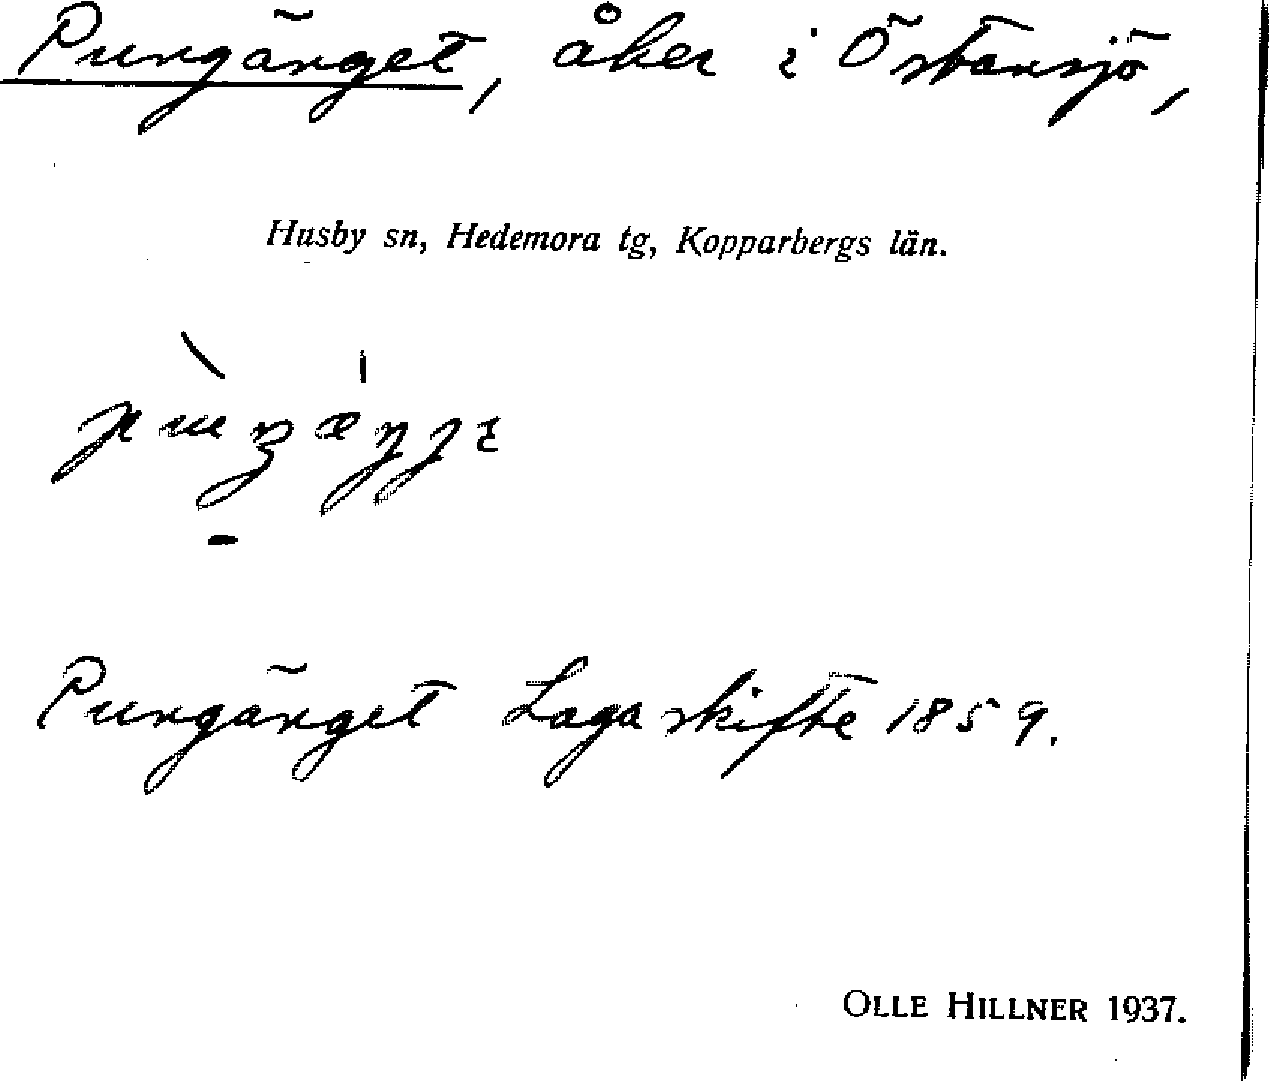 Pungänget, åker i Östansjö,
Husby sn, Hedemora tg, Kopparbergs län.
Pungänget Laga skifte 1859.
OLLE HILLNER 1937.